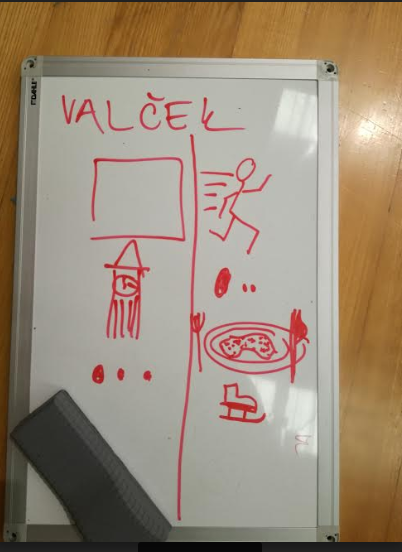 VALČEK